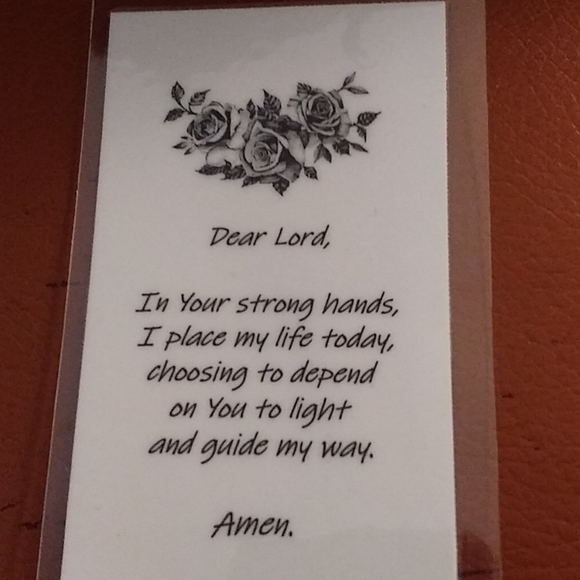 Dear Lord,
In Your strong hands,
I place my life today,
choosing to depend
on You to light
and guide my way.
Amen.